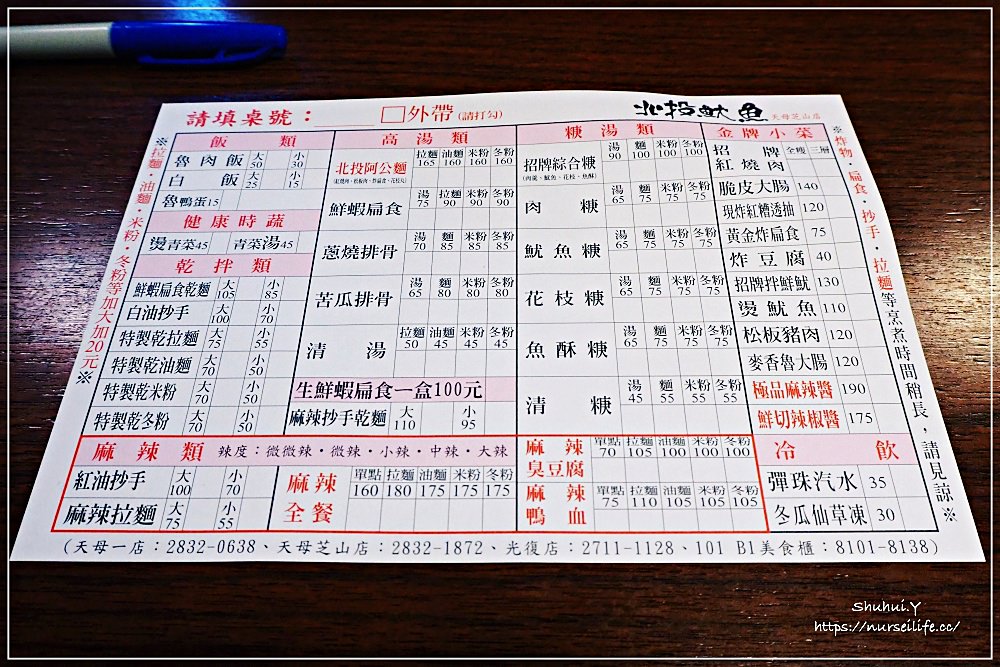 請填桌號： □外帶(請打勾) 北投魷魚 天母芝山店
※拉麵・油麵・米粉・冬粉等加大加20元※
飯類
魯肉飯 大50 小30
白飯 大25 小15
魯鴨蛋15
健康時蔬
燙青菜45 青菜湯45
乾拌類
鮮蝦扁食乾麵 大105 小85
白油抄手 大100 小70
特製乾拉麵 大75 小55
特製乾油麵 大70 小50
特製乾米粉 大70 小50
特製乾冬粉 大70 小50
高湯類
北投阿公麵 拉麵165 油麵160 米粉160 冬粉160
鮮蝦扁食 湯75 拉麵90 米粉90 冬粉90
蔥燒排骨 湯70 麵85 米粉85 冬粉85
苦瓜排骨 湯65 麵80 米粉80 冬粉80
清湯 拉麵50 油麵45 米粉45 冬粉45
生鮮蝦扁食一盒100元
麻辣抄手乾麵 大110 小95
糖湯類
招牌綜合糖 湯90 麵100 米粉100 冬粉100
(肉羹、魷魚、花枝、魚酥)
肉糖 湯65 麵75 米粉75 冬粉75
魷魚糖 湯65 麵75 米粉75 冬粉75
花枝糖 湯65 麵75 米粉75 冬粉75
魚酥糖 湯65 麵75 米粉75 冬粉75
清糖 湯45 麵55 米粉55 冬粉55
金牌小菜
招牌紅燒肉 全瘦 三層
脆皮大腸 140
現炸紅糟透抽 120
黃金炸扁食 75
炸豆腐 40
招牌拌鮮魷 130
燙魷魚 110
松板豬肉 120
麥香魯大腸 120
極品麻辣醬 190
鮮切辣椒醬 175
冷飲
彈珠汽水 35
冬瓜仙草凍 30
※炸物・扁食・抄手・拉麵等烹煮時間稍長，請見諒※
麻辣類 辣度：微微辣・微辣・小辣・中辣・大辣
紅油抄手 大100 小70
麻辣拉麵 大75 小55
麻辣全餐 單點160 拉麵180 油麵175 米粉175 冬粉175
麻辣臭豆腐 單點70 拉麵105 油麵100 米粉100 冬粉100
麻辣鴨血 單點75 拉麵110 油麵105 米粉105 冬粉105
(天母一店：2832-0638、天母芝山店：2832-1872、光復店：2711-1128、101 B1美食櫃：8101-8138)
Shuhui.Y
https://nurseilife.cc/